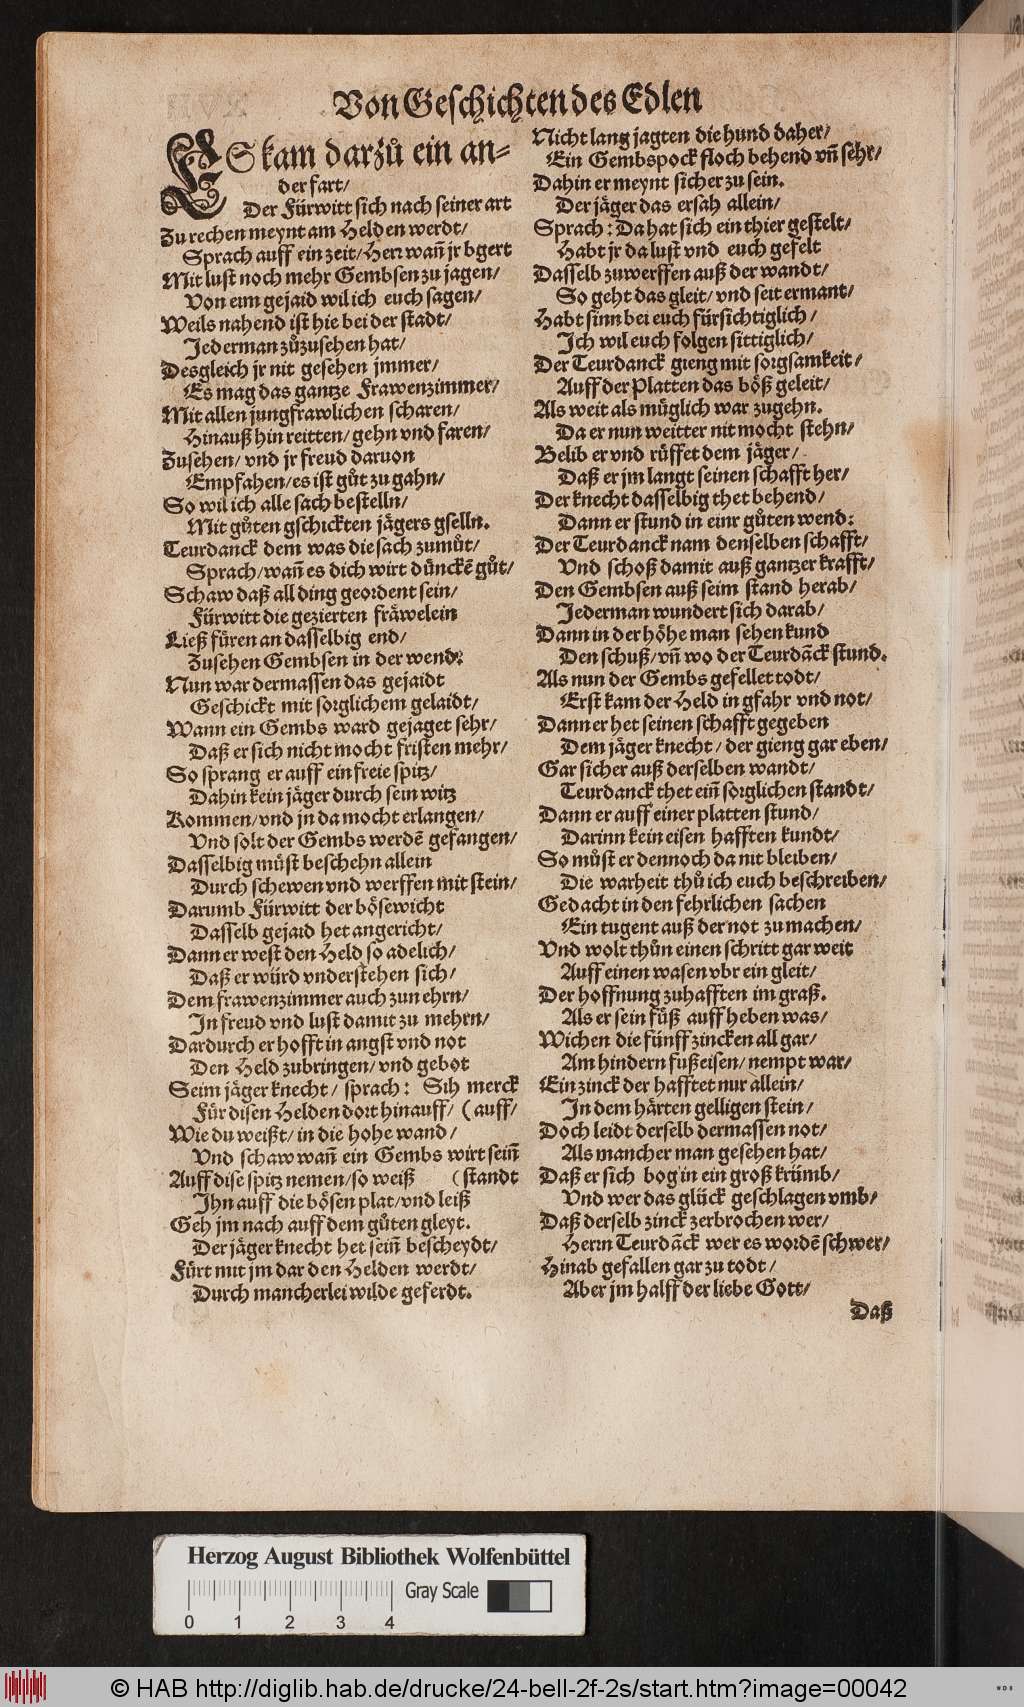 Von Geschichten des Edlen
ES kam darzuͦ ein an-
der fart/
Der Fürwitt sich nach seiner art
Zu rechen meynt am Helden werdt/
Sprach auff ein zeit/Herr wañ jr bgert
Mit lust noch mehr Gembsen zu jagen/
Von eim gejaid wil ich euch sagen/
Weils nahend ist hie bei der stadt/
Jederman zuͦzusehen hat/
Desgleich jr nit gesehen jmmer/
Es mag das gantze Frawenzimmer/
Mit allen jungfrawlichen scharen/
Hinauß hin reitten/gehn vnd faren/
Zusehen/vnd jr freud daruon
Empfahen/es ist guͦt zu gahn/
So wil ich alle sach bestelln/
Mit guͦten gschickten jägers gselln.
Teurdanck dem was die sach zumuͦt/
Sprach/wañ es dich wirt dünckẽ guͦt/
Schaw daß all ding geordent sein/
Fürwitt die gezierten fräwelein
Ließ füren an dasselbig end/
Zusehen Gembsen in der wend:
Nun war dermassen das gejaidt
Geschickt mit sorglichem gelaidt/
Wann ein Gembs ward gejaget sehr/
Daß er sich nicht mocht fristen mehr/
So sprang er auff ein freie spitz/
Dahin kein jäger durch sein witz
Kommen/vnd jn da mocht erlangen/
Vnd solt der Gembs werdẽ gefangen/
Dasselbig müst beschehn allein
Durch schewen vnd werffen mit stein/
Darumb Fürwitt der bösewicht
Dasselb gejaid het angericht/
Dann er west den Held so adelich/
Daß er würd vnderstehen sich/
Dem frawenzimmer auch zun ehrn/
In freud vnd lust damit zu mehrn/
Dardurch er hofft in angst vnd not
Den Held zubringen/vnd gebot
Seim jäger knecht/sprach: Sih merck
Für disen Helden dort hinauff/ (auff/
Wie du weißt/in die hohe wand/
Vnd schaw wañ ein Gembs wirt seiñ
Auff dise spitz nemen/so weiß (standt
Ihn auff die bösen plat/vnd leiß
Geh jm nach auff dem guͦten gleyt.
Der jäger knecht het seiñ bescheydt/
Fürt mit jm dar den Helden werdt/
Durch mancherlei wilde geferdt.
Nicht lang jagten die hund daher/
Ein Gembspock floch behend vñ sehr/
Dahin er meynt sicher zu sein.
Der jäger das ersah allein/
Sprach: Da hat sich ein thier gestelt/
Habt jr da lust vnd euch gefelt
Dasselb zuwerffen auß der wandt/
So geht das gleit/vnd seit ermant/
Habt sinn bei euch fürsichtiglich/
Ich wil euch folgen sittiglich/
Der Teurdanck gieng mit sorgsamkeit/
Auff der Platten das böß geleit/
Als weit als müglich war zugehn.
Da er nun weitter nit mocht stehn/
Belib er vnd rüffet dem jäger/
Daß er jm langt seinen schafft her/
Der knecht dasselbig thet behend/
Dann er stund in einr guͦten wend:
Der Teurdanck nam denselben schafft/
Vnd schoß damit auß gantzer krafft/
Den Gembsen auß seim stand herab/
Jederman wundert sich darab/
Dann in der höhe man sehen kund
Den schuß/vñ wo der Teurdãck stund.
Als nun der Gembs gefellet todt/
Erst kam der Held in gfahr vnd not/
Dann er het seinen schafft gegeben
Dem jäger knecht/der gieng gar eben/
Gar sicher auß derselben wandt/
Teurdanck thet eiñ sorglichen standt/
Dann er auff einer platten stund/
Darinn kein eisen hafften kundt/
So muͦst er dennoch da nit bleiben/
Die warheit thuͦ ich euch beschreiben/
Gedacht in den fehrlichen sachen
Ein tugent auß der not zu machen/
Vnd wolt thuͦn einen schritt gar weit
Auff einen wasen vbr ein gleit/
Der hoffnung zuhafften im graß.
Als er sein fuͦß auff heben was/
Wichen die fünff zincken all gar/
Am hindern fußeisen/nempt war/
Ein zinck der hafftet nur allein/
In dem härten gelligen stein/
Doch leidt derselb dermassen not/
Als mancher man gesehen hat/
Daß er sich bog in ein groß krümb/
Vnd wer das glück geschlagen vmb/
Daß derselb zinck zerbrochen wer/
Herrn Teurdãck wer es wordẽ schwer/
Hinab gefallen gar zu todt/
Aber jm halff der liebe Gott/
Daß
Herzog August Bibliothek Wolfenbüttel
Gray Scale
0 1 2 3 4
© HAB http://diglib.hab.de/drucke/24-bell-2f-2s/start.htm?image=00042